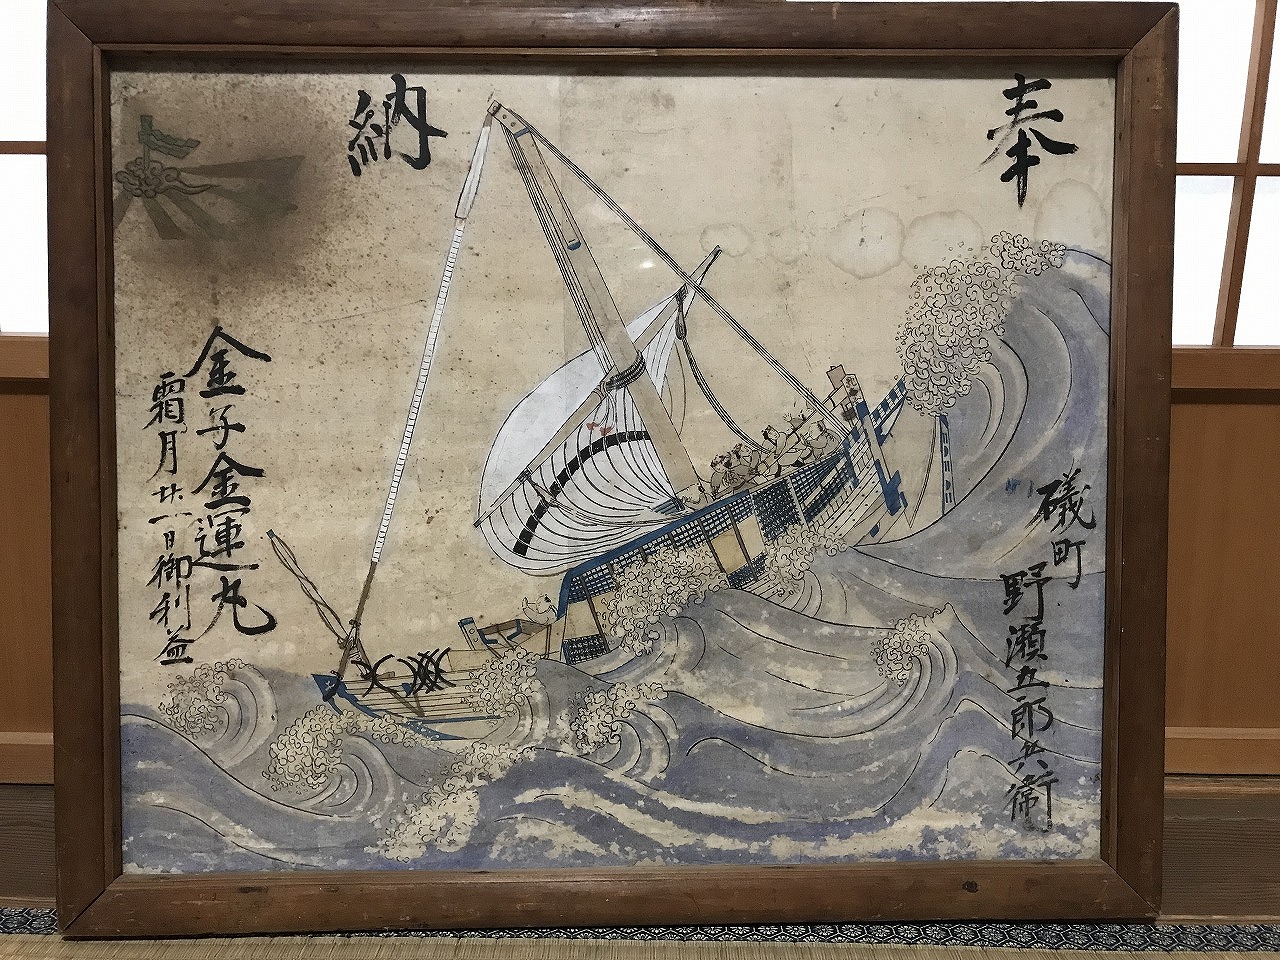 奉
納
磯町
野瀬五郎兵衛
金子金運丸
霜月廿一日御利益